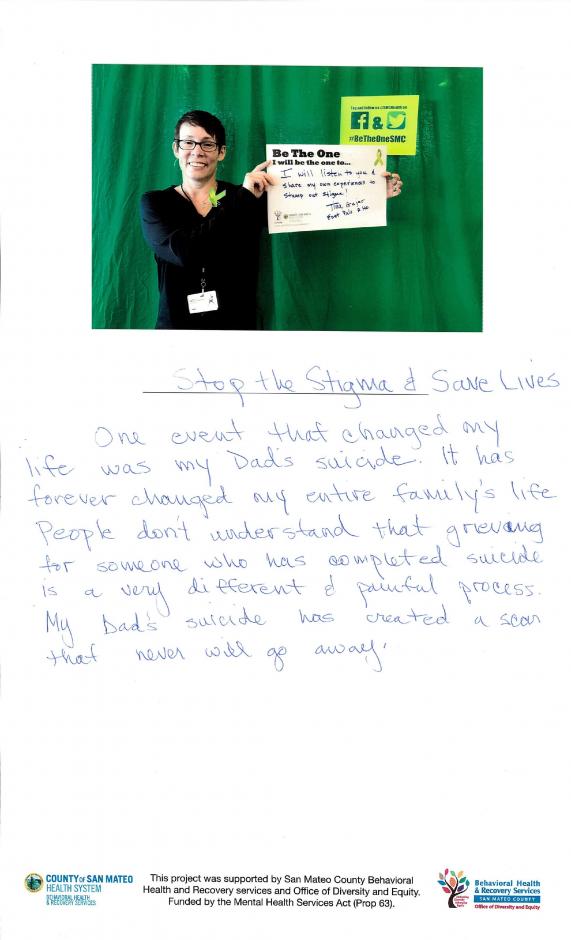 Tag and follow us @SMCHealth on
&
#BeTheOneSMC
Be The One
I will be the one to...
I will listen to you &
share my own experiences to
stomp out stigma!
East Palo Alto
Stop the Stigma & Save Lives
One event that changed my
life was my Dad's suicide. It has
forever changed my entire family's life
People don't understand that grieving
for someone who has completed suicide
is a very different & painful process.
My Dad's suicide has created a scar
that never will go away.
COUNTY OF SAN MATEO
HEALTH SYSTEM
BEHAVIORAL HEALTH
& RECOVERY SERVICES
This project was supported by San Mateo County Behavioral
Health and Recovery services and Office of Diversity and Equity.
Funded by the Mental Health Services Act (Prop 63).
Behavioral Health
& Recovery Services
SAN MATEO COUNTY
Office of Diversity and Equity